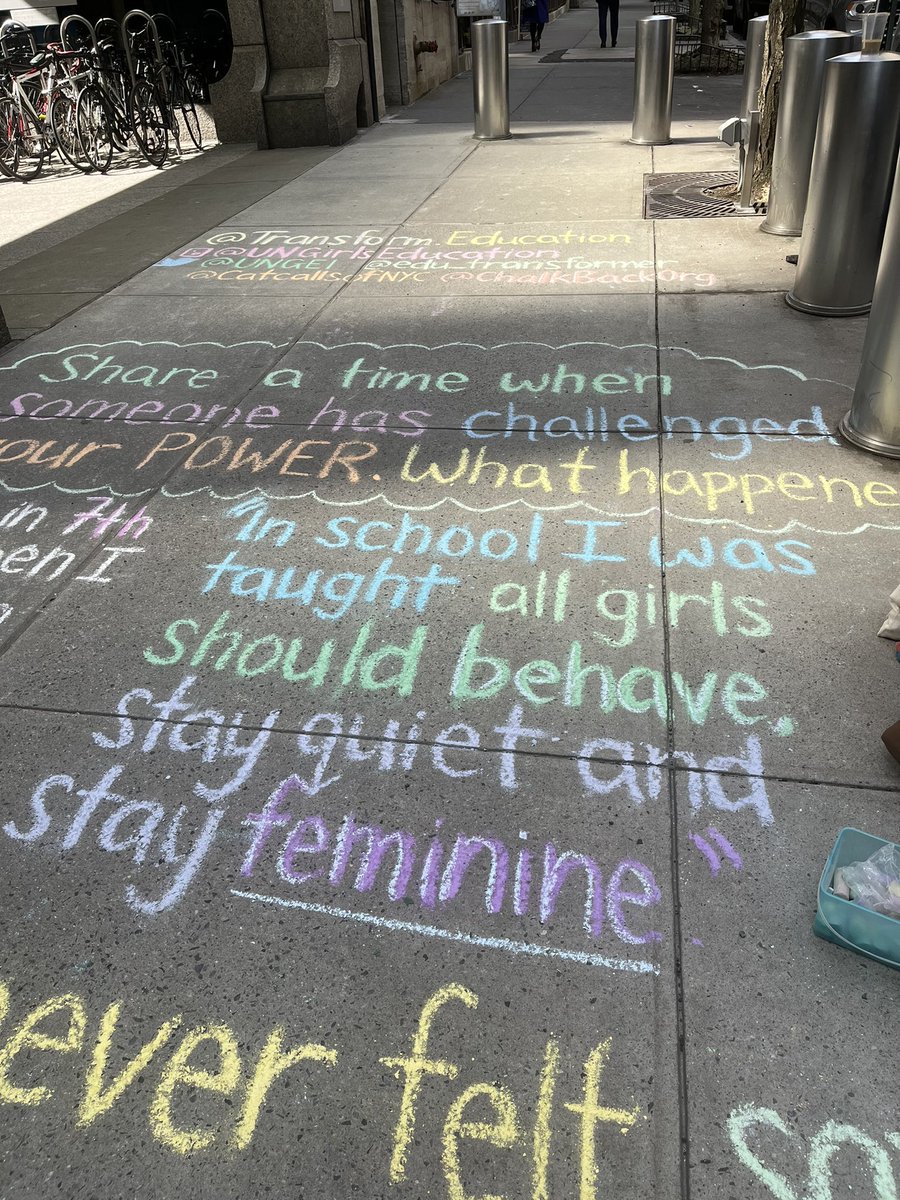 @Transform.Education
@UNGirlsEducation
@UNGEI @edu_transformer
@CatcallsofNYC @ChalkBackOrg
Share a time when
someone has challenged
your POWER. What happene
in 7th
en I
"In school I was
taught all girls
should behave.
stay quiet and
stay feminine."
ever felt